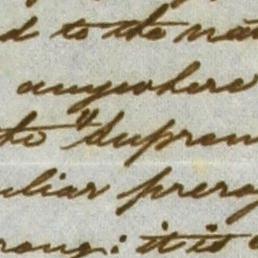 d to the nat
anywhere
the "Suprem
uliar prerog
rong: it is